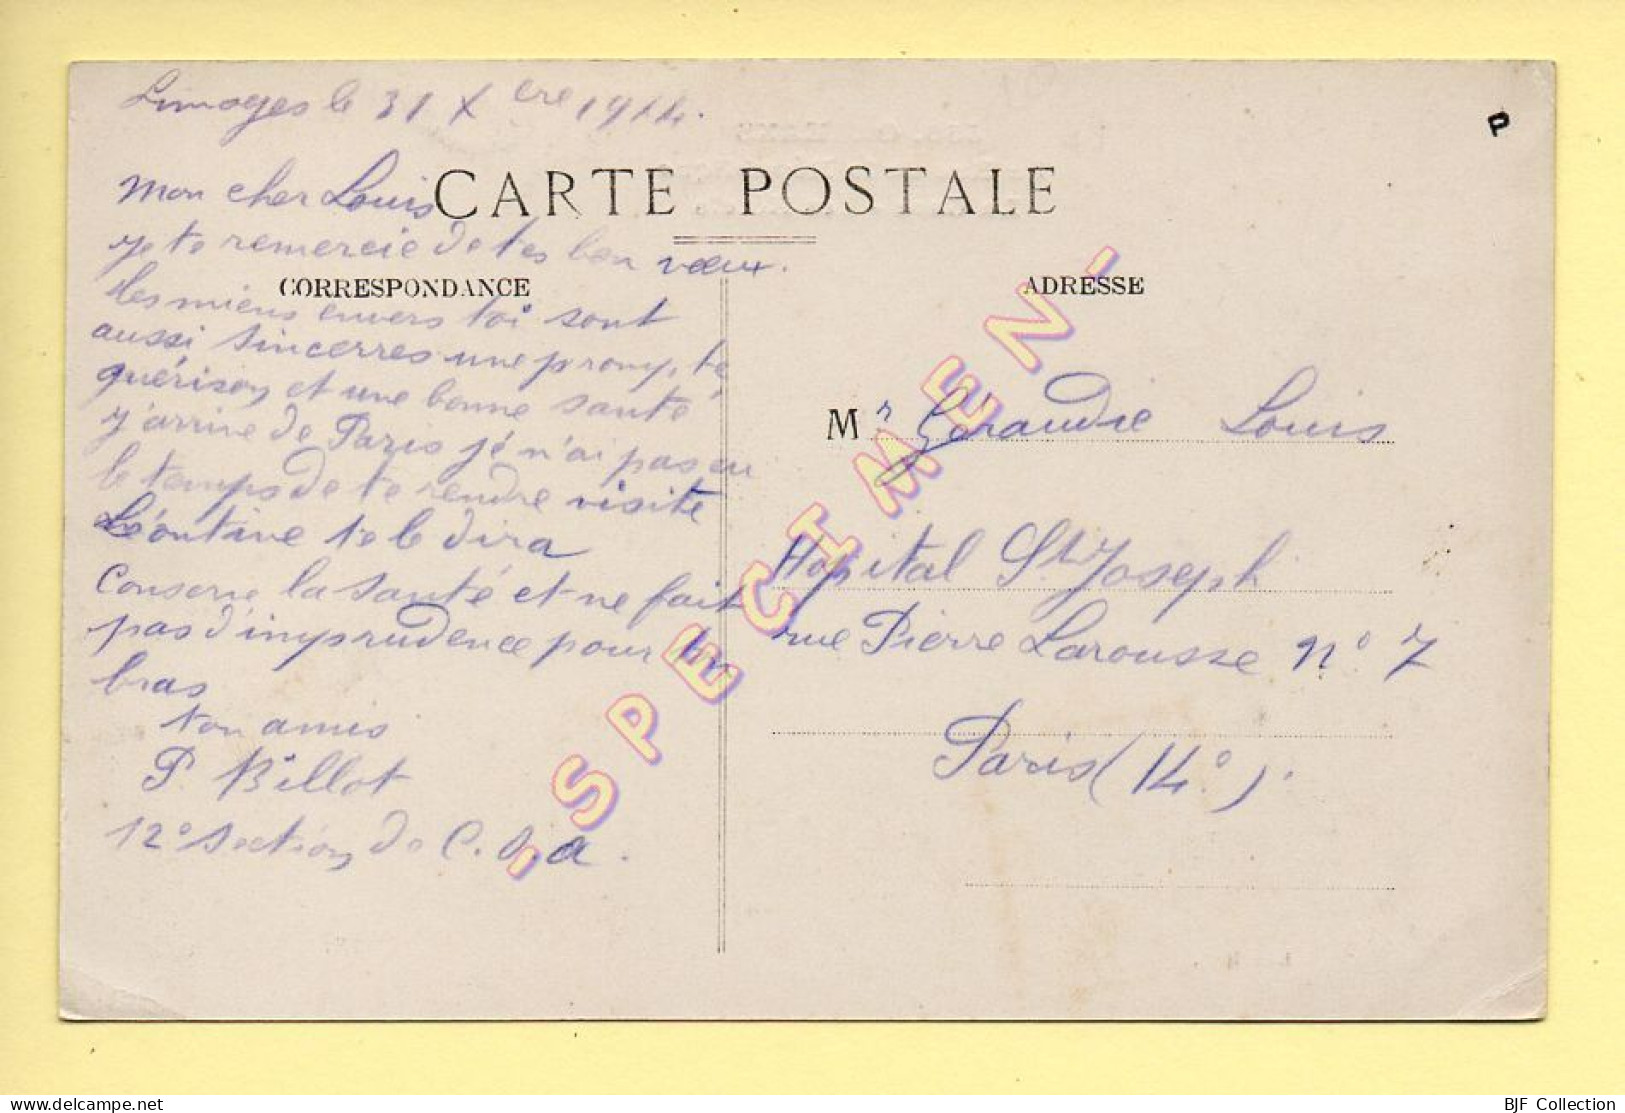 Limoges le 31 Xbre 1914.
CARTE POSTALE
Mon cher Louis
je te remercie de tes bon vœux.
CORRESPONDANCE
les miens envers toi sont
aussi sincerres une prompte
guérison et une bonne santé
j'arrive de Paris jé n'ai pas eu
le temps de te rendre visite
Léontine te le dira
Conserve la santé et ne fait
pas d'imprudence pour ton
bras
ton amis
P Billot
12e section de C.O.A.
ADRESSE
Mr Géraudie Louis
Hopital St Joseph
rue Pierre Larousse n° 7
Paris (14e).
-SPECIMEN-
delcampe.net
BJF Collection